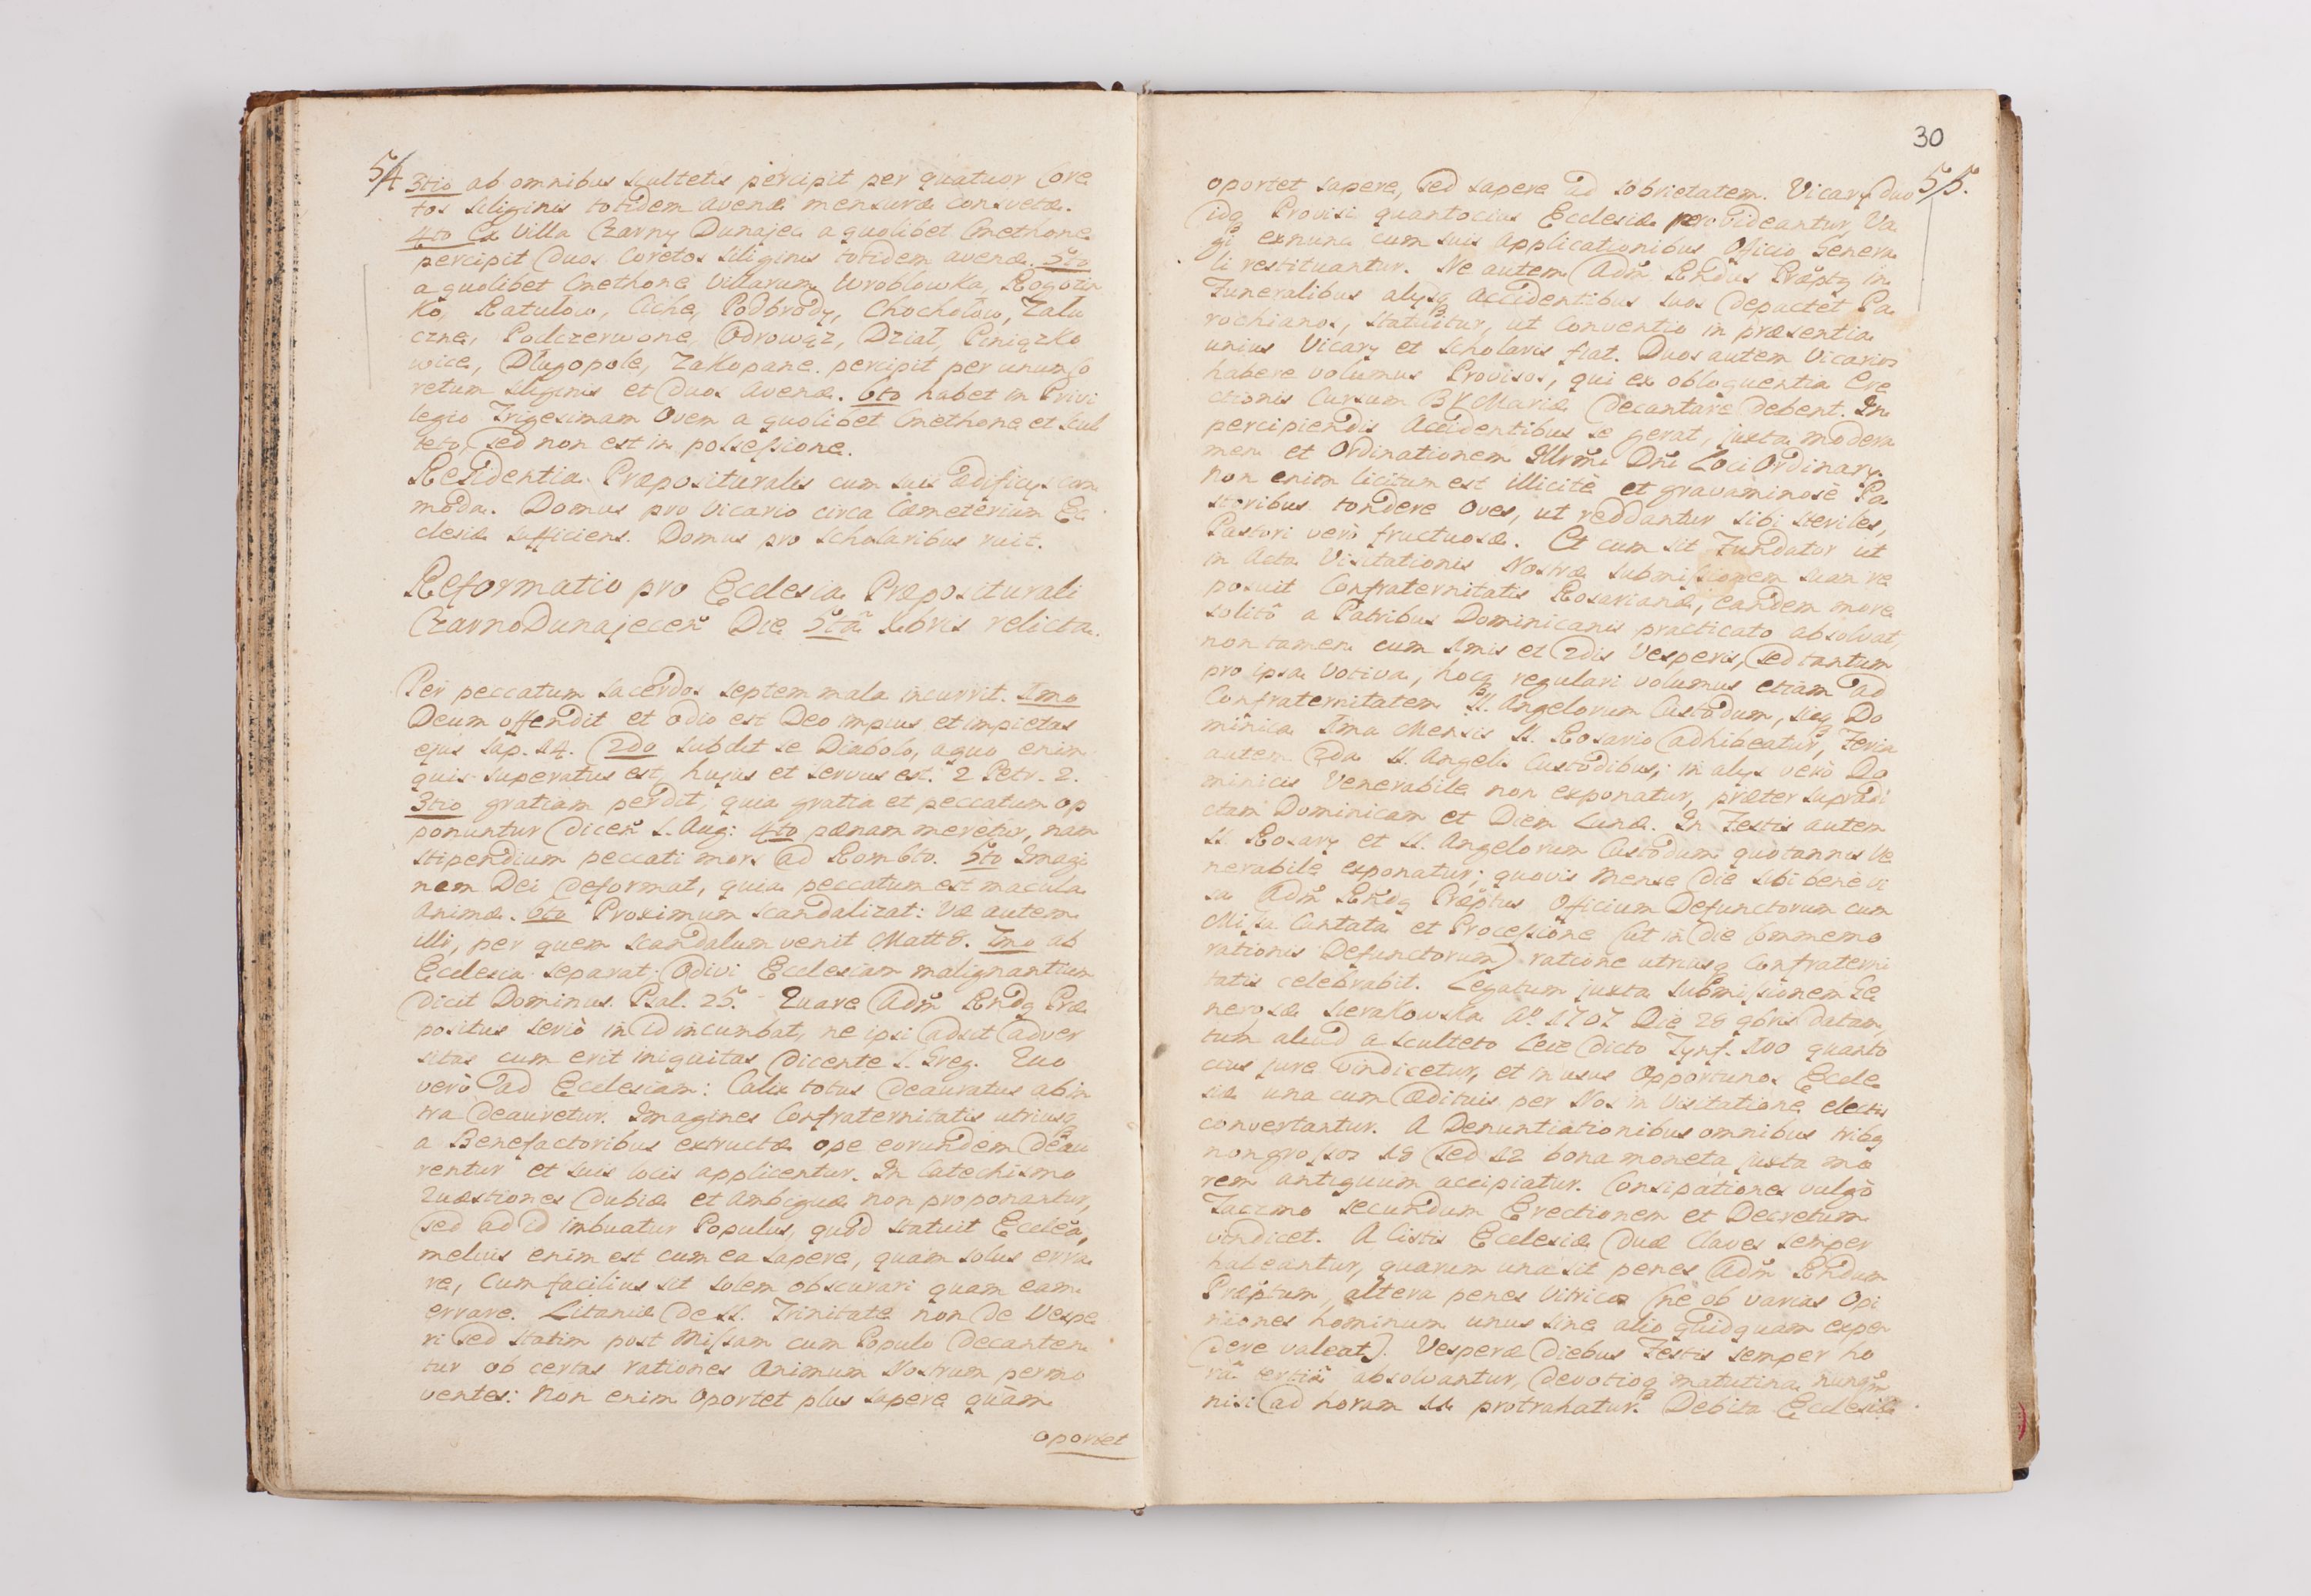 54
3tio ab omnibus scultetis percipit per quatuor Core
tos siliginis totidem avenæ mensuræ consvetæ.
4to Ex Villa Czarny Dunajec a quolibet Cmethone
percipit Duos Coretos siliginis totidem avenæ. 5to
a quolibet Cmethone Villarum Wroblowka, Rogozni
ko, Ratulow, Ciche, Podbrody, Chocholow, Zalu
czne, Podczerwone, Odrowąz, Dzial, Pieniązko
wice, Dlugopole, Zakopane. percipit per unum Co
retum siliginis et Duos Avenæ. 6to habet in Privi
legio Trigesimam Ovem a quolibet Cmethone et Scul
teto, sed non est in possessione.
Residentia Præposituralis cum suis ædificys com
moda. Domus pro Vicario circa Cæmeterium Ec
clesiæ sufficiens. Domus pro Scholaribus ruit.
Reformatio pro Ecclesia Præpositurali
CzarnoDunajeceñ Die 5tâ Xbris relicta.
Per peccatum sacerdos septem mala incurrit. 1mo
Deum offendit et odio est Deo impius et impietas
ejus Sap. 14. 2do subdit se Diabolo, a quo enim
quis superatus est, hujus et servus est. 2 Petr. 2.
3tio gratiam perdit, quia gratia et peccatum op
ponuntur dicen S. Aug: 4to pænam meretur, nam
stipendium peccati mors ad Rom 6to. 5to Imagi
nem Dei deformat, quia peccatum est macula
Animæ. 6to Proximum scandalizat: Væ autem
illi, per quem scandalum venit Matt 8. 7mo ab
Ecclesia separat. Odivi Ecclesiam malignantium
dicit Dominus. Psal. 25. Quare Adm̃ Rndq Præ
positus seriò in id incumbat, ne ipsi adsit adver
sitas cum erit iniquitas dicente S. Greg. Quo
verò ad Ecclesiam: Calix totus deauratus ab in
tra deauretur. Imagines Confraternitatis utriusq
a Benefactoribus extructæ ope eorundem deau
rentur et suis locis applicentur. In Catechismo
Quæstiones dubiæ et Ambiguæ non proponantur,
sed ad id imbuatur Populus, quod statuit Ecclea,
melius enim est cum ea sapere, quàm solus erra
re, cum facilius sit solem obscurari quam eam
errare. Litaniæ de SS. Trinitate non de Vespe
ri sed statim post Missam cum Populo decanten
tur ob certas rationes Animum Nostrum permo
ventes: Non enim oportet plus sapere quàm
oportet
30
55.
oportet sapere, sed sapere ad sobrietatem. Vicary duo
idq Provisi quantocius Ecclesiæ provideantur, Va
gi exnunc cum suis applicationibus Officio Genera
li restituantur. Ne autem Adm̃ Rñdus Præptg in
Funeralibus alysq Accidentibus suos depactet Pa
rochianos, statuitur, ut Conventio in præsentia
unius Vicary et Scholaris fiat. Duos autem Vicarios
habere volumus Provisos, qui ex obloquentia Ere
ctionis Cursum BV Mariæ decantare debent. In
percipiendis Accidentibus se gerat, juxta modera
men et Ordinationem Illrm̃i Dñi Loci Ordinary.
Non enim licitum est illicitè et gravaminosè Pa
storibus tondere Oves, ut reddantur sibi steriles,
Pastori verò fructuosæ. Et cum sit Fundator ut
in Acta Visitationis Nostræ submissionem suam re
posuit Confraternitatis Rosarianæ, eandem more
solitô a Patribus Dominicanis practicato absolvat,
non tamen cum 1mis et 2dis Vesperis, sed tantum
pro ipsa Votiva, hocq regulari volumus etiam ad
Confraternitatem SS. Angelorum Custodum, sicq Do
minica 1ma Mensis SS. Rosario adhibeatur, Feria
autem 2da SS. Angelis Custodibus; in alys verò Do
minicis Venerabile non exponatur, præter supradi
ctam Dominicam et Diem Lunæ. In Festis autem
SS. Rosary et SS. Angelorum Custodum quotannis Ve
nerabile exponatur; quovis mense die sibi benè vi
sa Adm̃ Rñdq Præptus Officium Defunctorum cum
Missa Cantata et Processione (ut in die Commemo
rationis Defunctorum) ratione utriusq Confraterni
tatis celebrabit. Legatum juxta submissionem Ge
nerosæ Sierakowska Aº 1707 Die 28 9bris datam,
tum aliud a Sculteto Leie dicto Tynf. 100 quantò
cius jure vindicetur, et in usus Opportunos Eccle
siæ una cum ædituis per Nos in Visitatione electis
convertantur. A Denuntiationibus omnibus tribq
non grossos 18 sed 12 bona moneta juxta mo
rem antiquum accipiatur. Consipationes vulgò
Taczmo secundum Erectionem et Decretum
vindicet. A Cistis Ecclesiæ duæ Claves semper
habeantur, quarum una sit penes Adm̃ Rñdum
Præptum, altera penes Vitricos (ne ob varias Opi
niones hominum unus sine alio quidquam expen
dere valeat). Vesperæ diebus Festis semper ho
râ tertiâ absolvantur, devotioq matutina nunqm
nisi ad horam 11 protrahatur. Debita Ecclesiæ